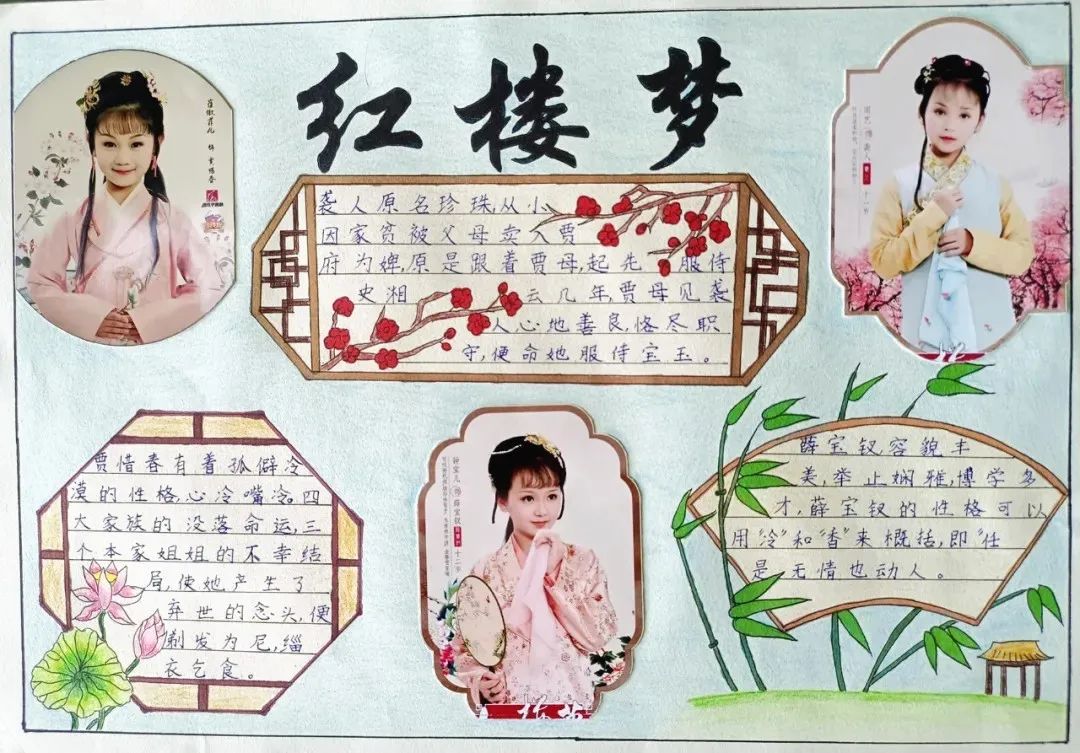 红楼梦
袭人原名珍珠,从小
因家贫被父母卖入贾
府为婢,原是跟着贾母,起先服侍
史湘云几年,贾母见袭
人心地善良,恪尽职
守,便命她服侍宝玉。
饰 贾惜春
十一岁
贾惜春有着孤僻冷
漠的性格,心冷嘴冷。四
大家族的没落命运,三
个本家姐姐的不幸结
局,使她产生了
弃世的念头,便
剃发为尼,缁
衣乞食。
钟宝儿 饰 薛宝钗
十二岁
薛宝钗容貌丰
美,举止娴雅,博学多
才,薛宝钗的性格可以
用"冷"和"香"来概括,即"任
是无情也动人。